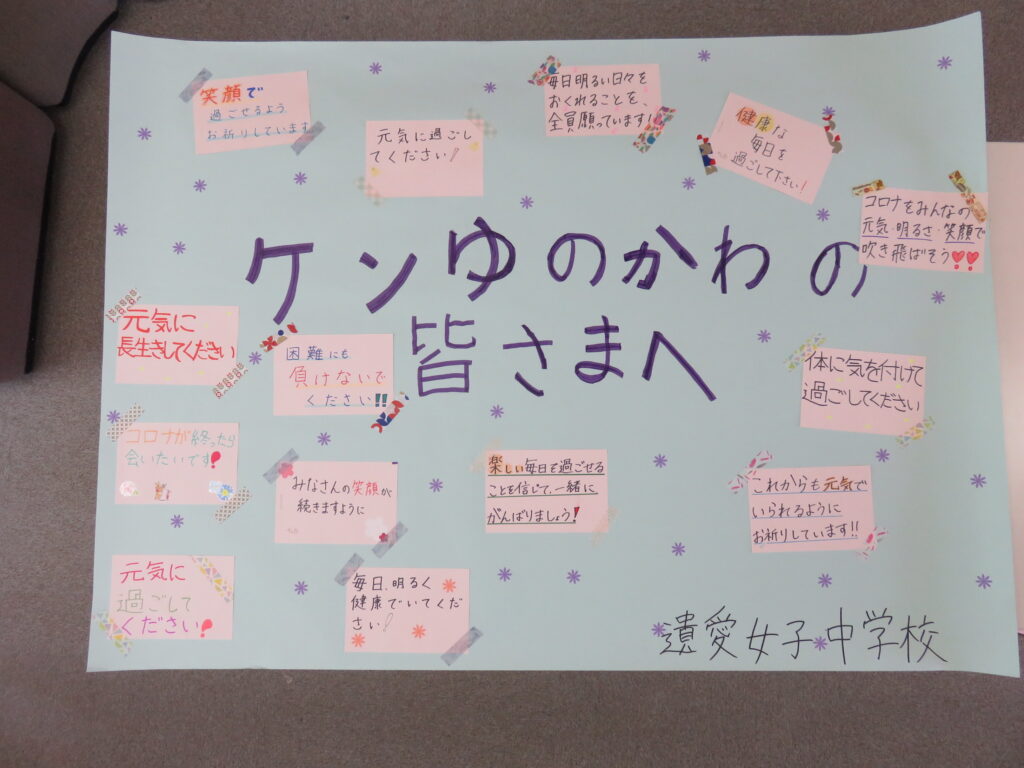 笑顔で
過ごせるよう
お祈りしています
元気に過ごし
てください!
毎日明るい日々を
おくれることを、
全員願っています!
健康な
毎日を
過ごして下さい!
コロナをみんなの
元気・明るさ・笑顔で
吹き飛ばそう
ケンゆのかわの
皆さまへ
元気に
長生きしてください
困難にも
負けないで
ください!!
体に気を付けて
過ごしてください
コロナが終ったら
会いたいです!
みなさんの笑顔が
続きますように
楽しい毎日を過ごせる
ことを信じて、一緒に
がんばりましょう!
これからも元気で
いられるように
お祈りしています!!
元気に
過ごして
ください!
毎日、明るく
健康でいてくだ
さい!
遺愛女子中学校